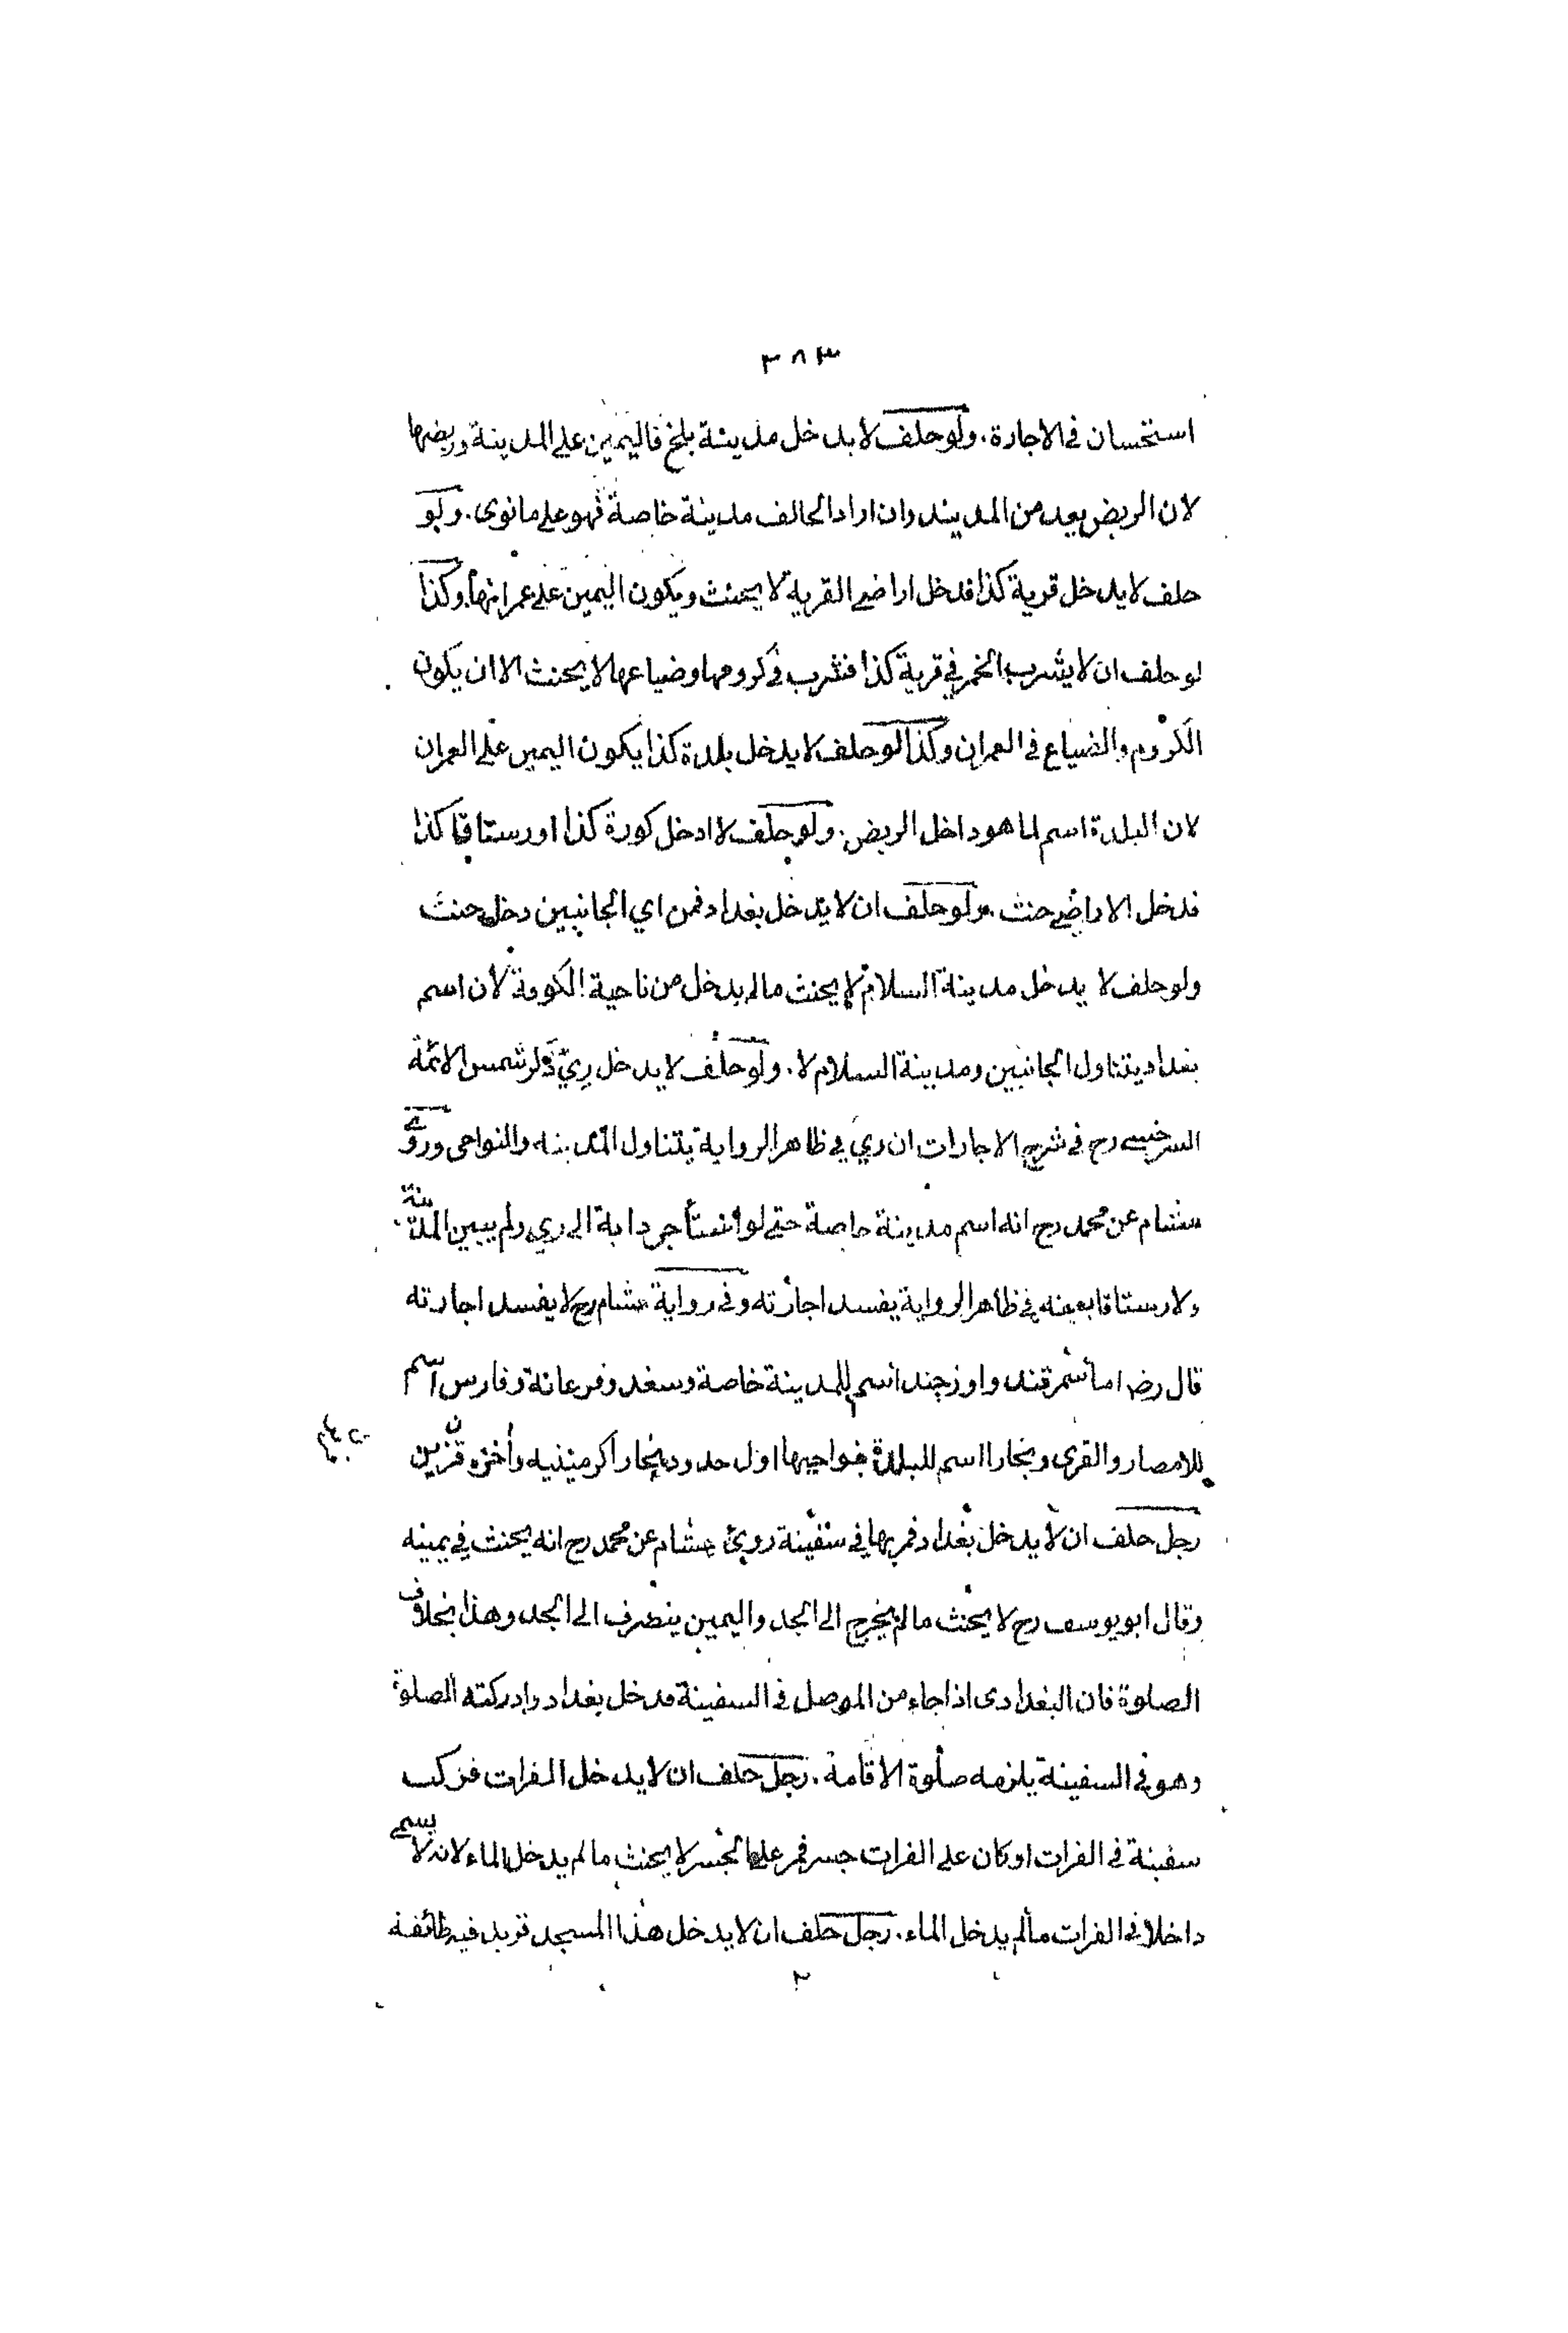 ٣٨٣
استحسان في الاجارة . ولو حلف لا يدخل مدينة بلخ فاليمين على المدينة وربضها
لان الربض يعد من المدينة وان اراد الحالف مدينة خاصة فهو على ما نوى . ولو
حلف لا يدخل قرية كذا فدخل اراضي القرية لا يحنث ويكون اليمين على عمرانها وكذا
لو حلف ان لا يشرب الخمر في قرية كذا فشرب في كرومها وضياعها لا يحنث الا ان يكون
الكروم والضياع في العمران وكذا لو حلف لا يدخل بلدة كذا يكون اليمين على العمران
لان البلدة اسم لما هو داخل الربض . ولو حلف لا ادخل كورة كذا او رستاقا كذا
فدخل الاراضي حنث . ولو حلف ان لا يدخل بغداد فمن اي الجانبين دخل حنث
ولو حلف لا يدخل مدينة السلام لا يحنث مالم يدخل من ناحية الكوفة لان اسم
بغداد يتناول الجانبين ومدينة السلام لا . ولو حلف لا يدخل ريّ ذكر شمس الائمة
السرخسي رح في شرح الاجارات ان ري في ظاهر الرواية يتناول المدينة والنواحي وروى
هشام عن محمد رح انه اسم مدينة خاصة حتى لو استأجر دابة الى ري ولم يبين المدينة
ولا رستاقا بعينه في ظاهر الرواية يفسد اجارته وفي رواية هشام رح لا يفسد اجارته
قال رض اما سمرقند واوزجند اسم للمدينة خاصة وسغد وفرغانة وفارس اسم
للامصار والقرى وبخارا اسم للبلدة بنواحيها اول حدود بخارا كرمينيه وأخره
رجل حلف ان لا يدخل بغداد فمر بها في سفينة روى هشام عن محمد رح انه يحنث في يمينه
وقال ابو يوسف رح لا يحنث مالم يخرج الى الجد واليمين ينصرف الى الجد وهذا بخلاف
الصلوة فان البغدادى اذا جاء من الموصل في السفينة فدخل بغداد وادركته الصلوة
وهو في السفينة يلزمه صلوة الاقامة . رجل حلف ان لا يدخل الفرات فركب
سفينة في الفرات او كان على الفرات جسر فمر على الجسر لا يحنث مالم يدخل الماء لانه لا يسمى
داخلا في الفرات مالم يدخل الماء . رجل حلف ان لا يدخل هذا المسجد فزيد فيه طائفة